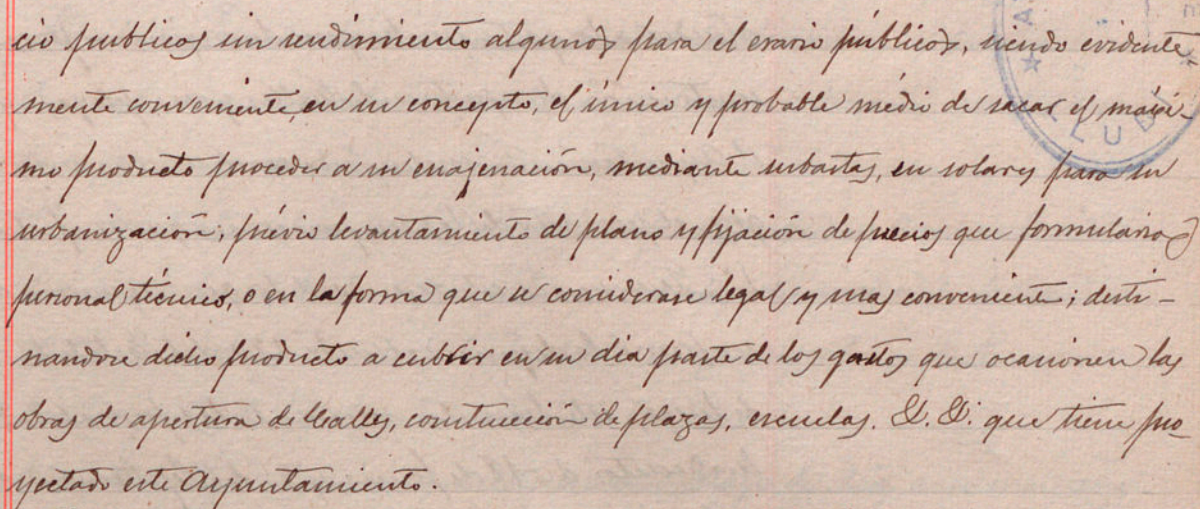 cio publicos sin rendimiento alguno para el erario público, siendo evidente
mente conveniente, en su concepto, el único y probable médio de sacar el máxi-
mo producto proceder a su enajenación, mediante subastas, en solares para su
urbanización; prévio levantamiento de plano y fijación de precios que formulara
personal técnico, o en la forma que se considerase legal y mas conveniente; desti-
nandose dicho producto a cubrir en su dia parte de los gastos que ocasionen las
obras de apertura de Calles, construcción de plazas, escuelas. &. &. que tiene pro-
yectado este Ayuntamiento.
LLUB